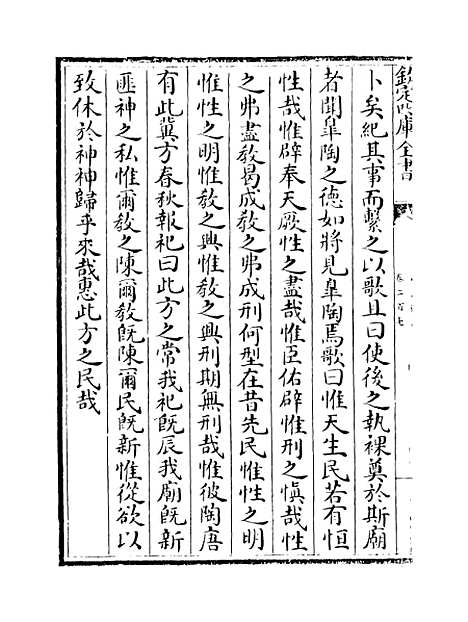 欽定四庫全書
卜矣紀其事而繫之以歌且曰使後之執祼奠於斯廟
者聞臯陶之德如將見臯陶焉歌曰惟天生民若有恒
性哉惟辟奉天厥性之盡哉惟臣佑辟惟刑之慎哉性
之弗盡教曷成教之弗成刑何型在昔先民惟性之明
惟性之明惟教之興惟教之興刑期無刑哉惟彼陶唐
有此冀方春秋報祀曰此方之常我祀旣辰我廟旣新
匪神之私惟爾教之陳爾教旣陳爾民旣新惟從欲以
致休於神神歸乎來哉惠此方之民哉